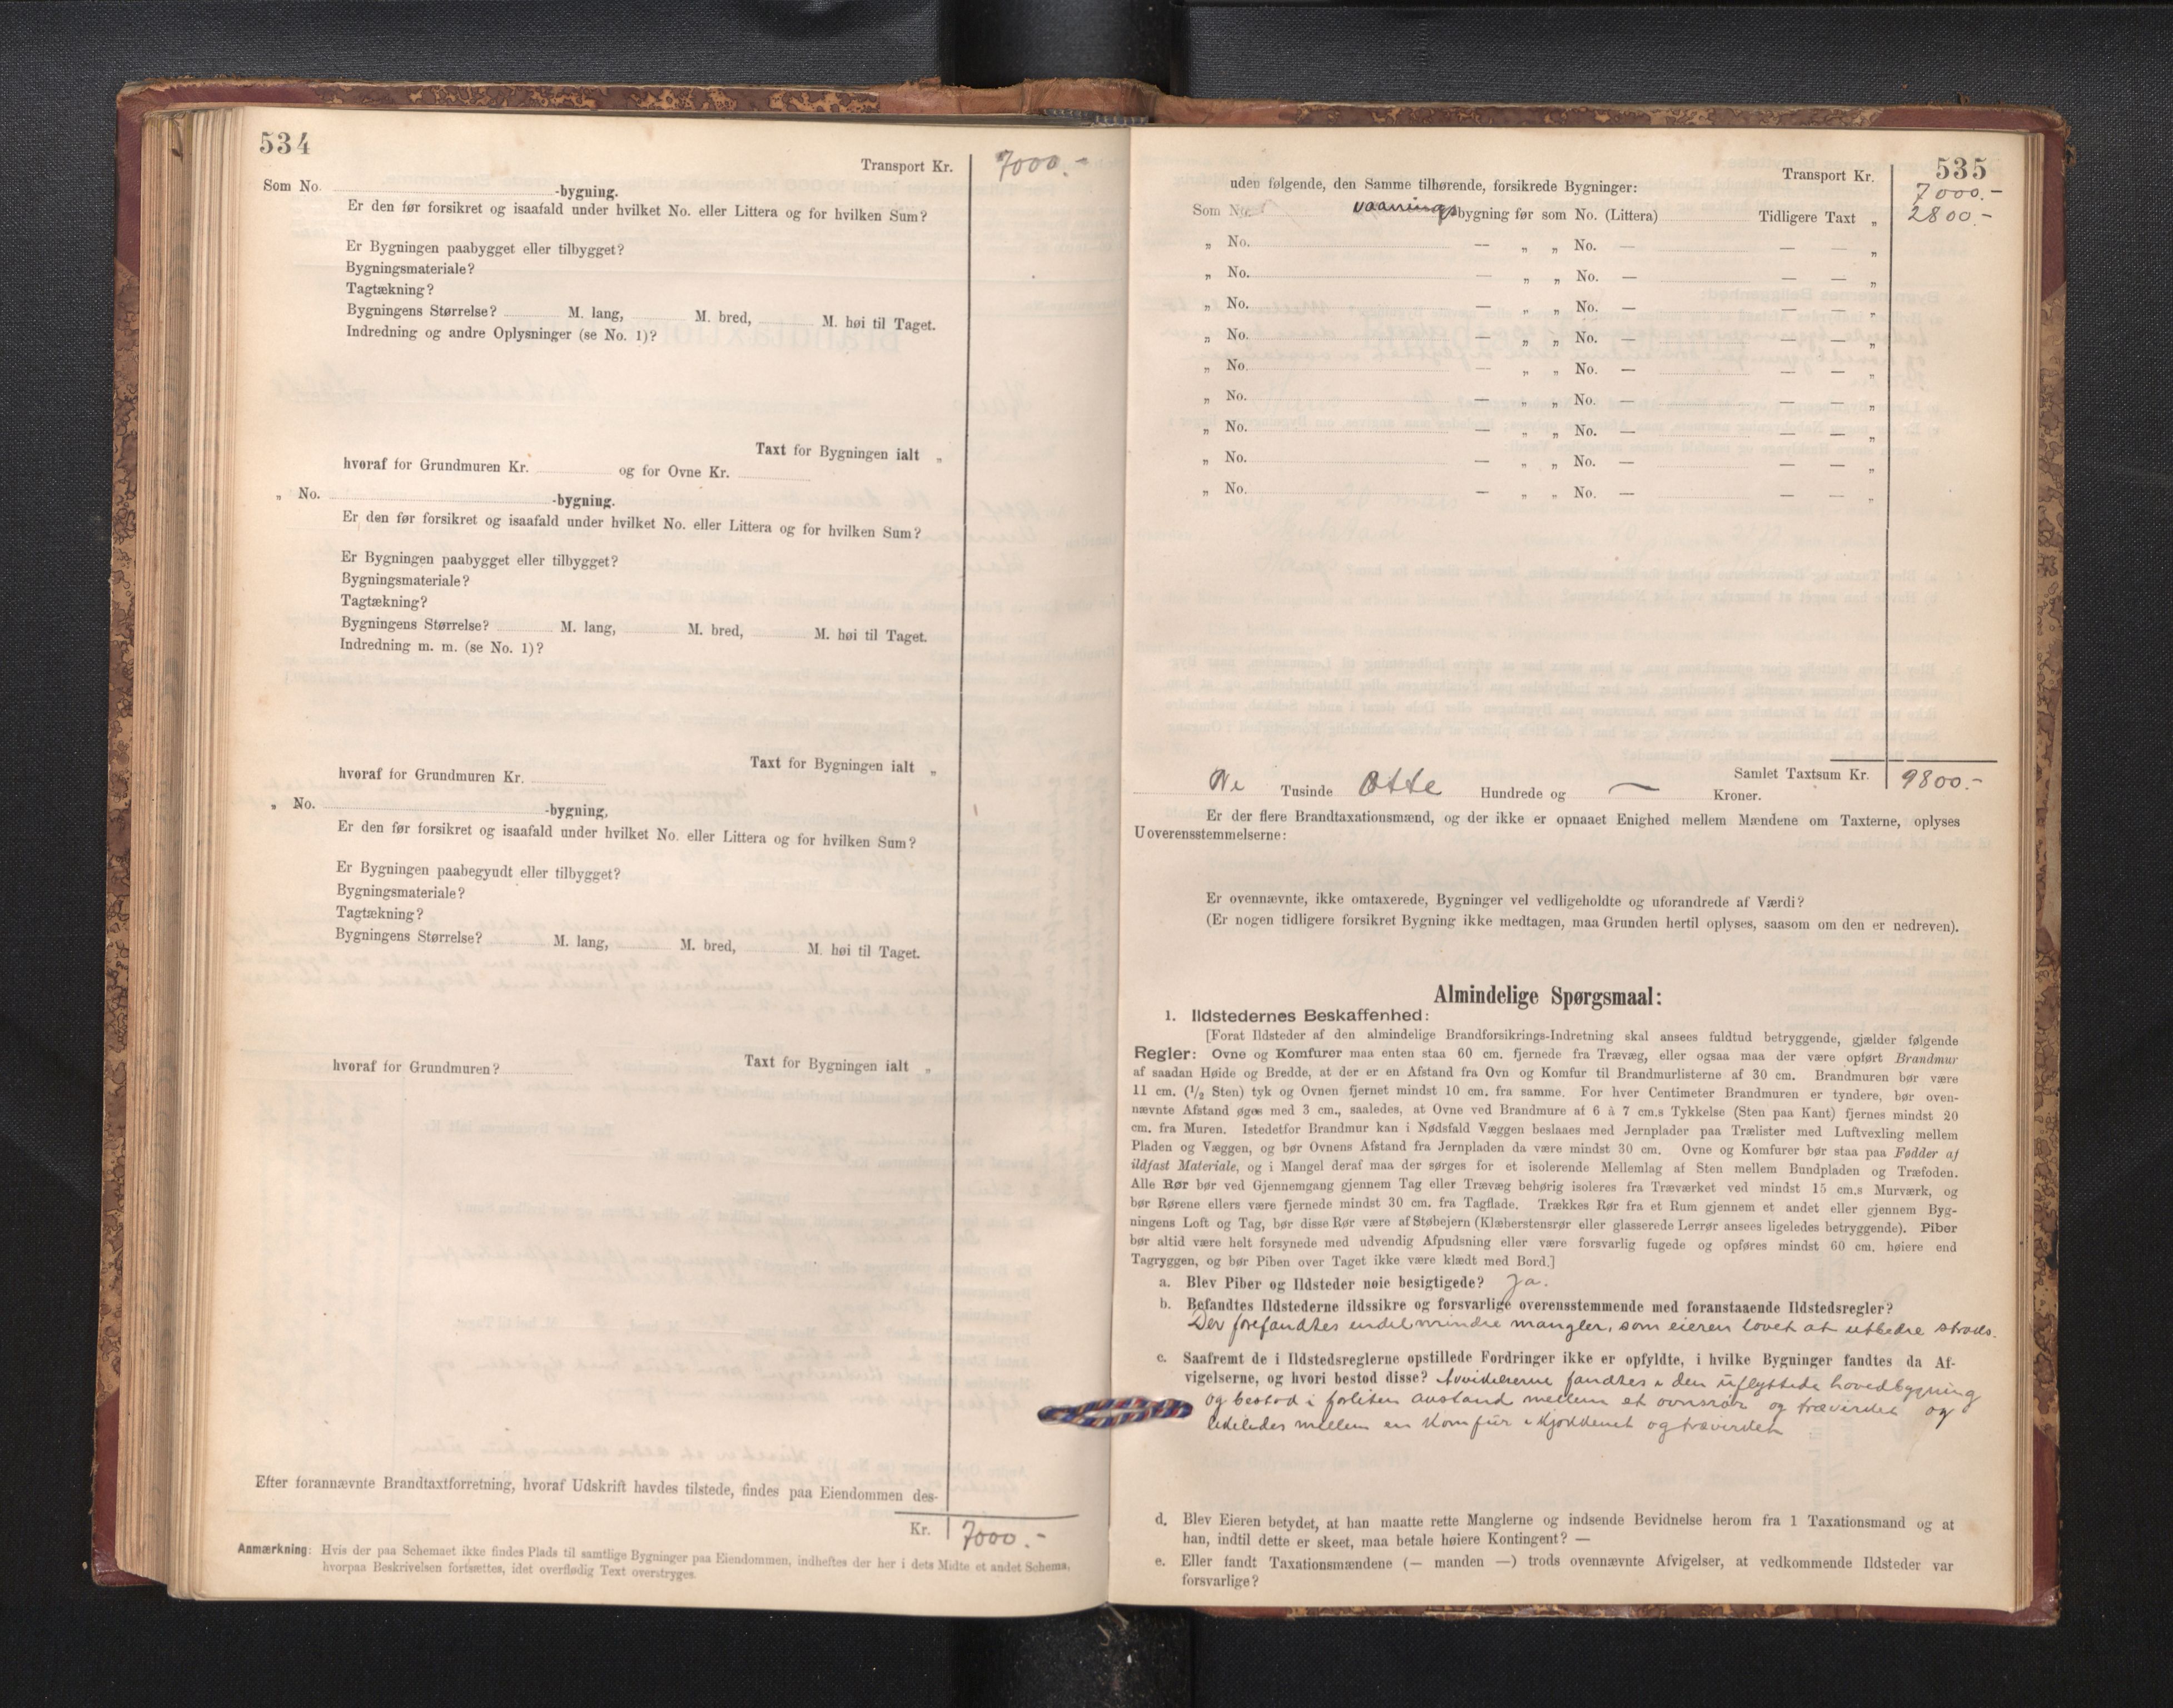 534
Transport Kr. 7000.-
Som No. -bygning.
Er den før forsikret og isaafald under hvilket No. eller Littera og for hvilken Sum?
Er Bygningen paabygget eller tilbygget?
Bygningsmateriale?
Tagtækning?
Bygningens Størrelse? M. lang, M. bred, M. høi til Taget.
Indredning og andre Oplysninger (se No. 1)?
Taxt for Bygningen ialt „
hvoraf for Grundmuren Kr. og for Ovne Kr.
„ No. -bygning.
Er den før forsikret og isaafald under hvilket No. eller Littera og for hvilken Sum?
Er Bygningen paabygget eller tilbygget?
Bygningsmateriale?
Tagtækning?
Bygningens Størrelse? M. lang, M. bred, M. høi til Taget.
Indredning m. m. (se No. 1)?
Taxt for Bygningen ialt „
hvoraf for Grundmuren Kr.
„ No. -bygning,
Er den før forsikret og isaafald under hvilket No. eller Littera og for hvilken Sum?
Er Bygningen paabegyndt eller tilbygget?
Bygningsmateriale?
Tagtækning?
Bygningens Størrelse? M. lang, M. bred, M. høi til Taget.
Taxt for Bygningen ialt „
hvoraf for Grundmuren?
Efter forannævnte Brandtaxtforretning, hvoraf Udskrift havdes tilstede, findes paa Eiendommen des-
Kr. 7000.-
Anmærkning: Hvis der paa Schemaet ikke findes Plads til samtlige Bygninger paa Eiendommen, indheftes der her i dets Midte et andet Schema,
hvorpaa Beskrivelsen fortsættes, idet overflødig Text overstryges.
535
Transport Kr. 7000.-
uden følgende, den Samme tilhørende, forsikrede Bygninger:
Som No. vaanings bygning før som No. (Littera) Tidligere Taxt „ 2800-
„ No. — „ „ No. — — — „
„ No. — „ „ No. — — — „
„ No. — „ „ No. — — — „
„ No. — „ „ No. — — — „
„ No. — „ „ No. — — — „
„ No. — „ „ No. — — — „
„ No. — „ „ No. — — — „
„ No. — „ „ No. — — — „
„ No. — „ „ No. — — — „
Samlet Taxtsum Kr. 9800.-
Ni Tusinde Otte Hundrede og — Kroner.
Er der flere Brandtaxationsmænd, og der ikke er opnaaet Enighed mellem Mændene om Taxterne, oplyses
Uoverensstemmelserne:
Er ovennævnte, ikke omtaxerede, Bygninger vel vedligeholdte og uforandrede af Værdi?
(Er nogen tidligere forsikret Bygning ikke medtagen, maa Grunden hertil oplyses, saasom om den er nedreven).
Almindelige Spørgsmaal:
1. Ildstedernes Beskaffenhed:
[Forat Ildsteder af den almindelige Brandforsikrings-Indretning skal ansees fuldtud betryggende, gjælder følgende
Regler: Ovne og Komfurer maa enten staa 60 cm. fjernede fra Trævæg, eller ogsaa maa der være opført Brandmur
af saadan Høide og Bredde, at der er en Afstand fra Ovn og Komfur til Brandmurlisterne af 30 cm. Brandmuren bør være
11 cm. (1/2 Sten) tyk og Ovnen fjernet mindst 10 cm. fra samme. For hver Centimeter Brandmuren er tyndere, bør oven-
nævnte Afstand øges med 3 cm., saaledes, at Ovne ved Brandmure af 6 à 7 cm.s Tykkelse (Sten paa Kant) fjernes mindst 20
cm. fra Muren. Istedetfor Brandmur kan i Nødsfald Væggen beslaaes med Jernplader paa Trælister med Luftvexling mellem
Pladen og Væggen, og bør Ovnens Afstand fra Jernpladen da være mindst 30 cm. Ovne og Komfurer bør staa paa Fødder af
ildfast Materiale, og i Mangel deraf maa der sørges for et isolerende Mellemlag af Sten mellem Bundpladen og Træfoden.
Alle Rør bør ved Gjennemgang gjennem Tag eller Trævæg behørig isoleres fra Træværket ved mindst 15 cm.s Murværk, og
bør Rørene ellers være fjernede mindst 30 cm. fra Tagflade. Trækkes Rør fra et Rum gjennem et andet eller gjennem Byg-
ningens Loft og Tag, bør disse Rør være af Støbejern (Klæberstensrør eller glasserede Lerrør ansees ligeledes betryggende). Piber
bør altid være helt forsynede med udvendig Afpudsning eller være forsvarlig fugede og opføres mindst 60 cm. høiere end
Tagryggen, og bør Piben over Taget ikke være klædt med Bord.]
a. Blev Piber og Ildsteder nøie besigtigede? Ja.
b. Befandtes Ildstederne ildssikre og forsvarlige overensstemmende med foranstaaende Ildstedsregler?
Der forefandtes endel mindre mangler, som eieren lovet at utbedre straks.
c. Saafremt de i Ildstedsreglerne opstillede Fordringer ikke er opfyldte, i hvilke Bygninger fandtes da Af-
vigelserne, og hvori bestod disse? Avvikelserne fandtes i den uflyttede hovedbygning
og bestod i forliten avstand mellem et ovnsrør og træverket og
likeledes mellem en Komfur i kjøkkenet og træverket
d. Blev Eieren betydet, at han maatte rette Manglerne og indsende Bevidnelse herom fra 1 Taxationsmand og at
han, indtil dette er skeet, maa betale høiere Kontingent? —
e. Eller fandt Taxationsmændene (— manden —) trods ovennævnte Afvigelser, at vedkommende Ildsteder var
forsvarlige?